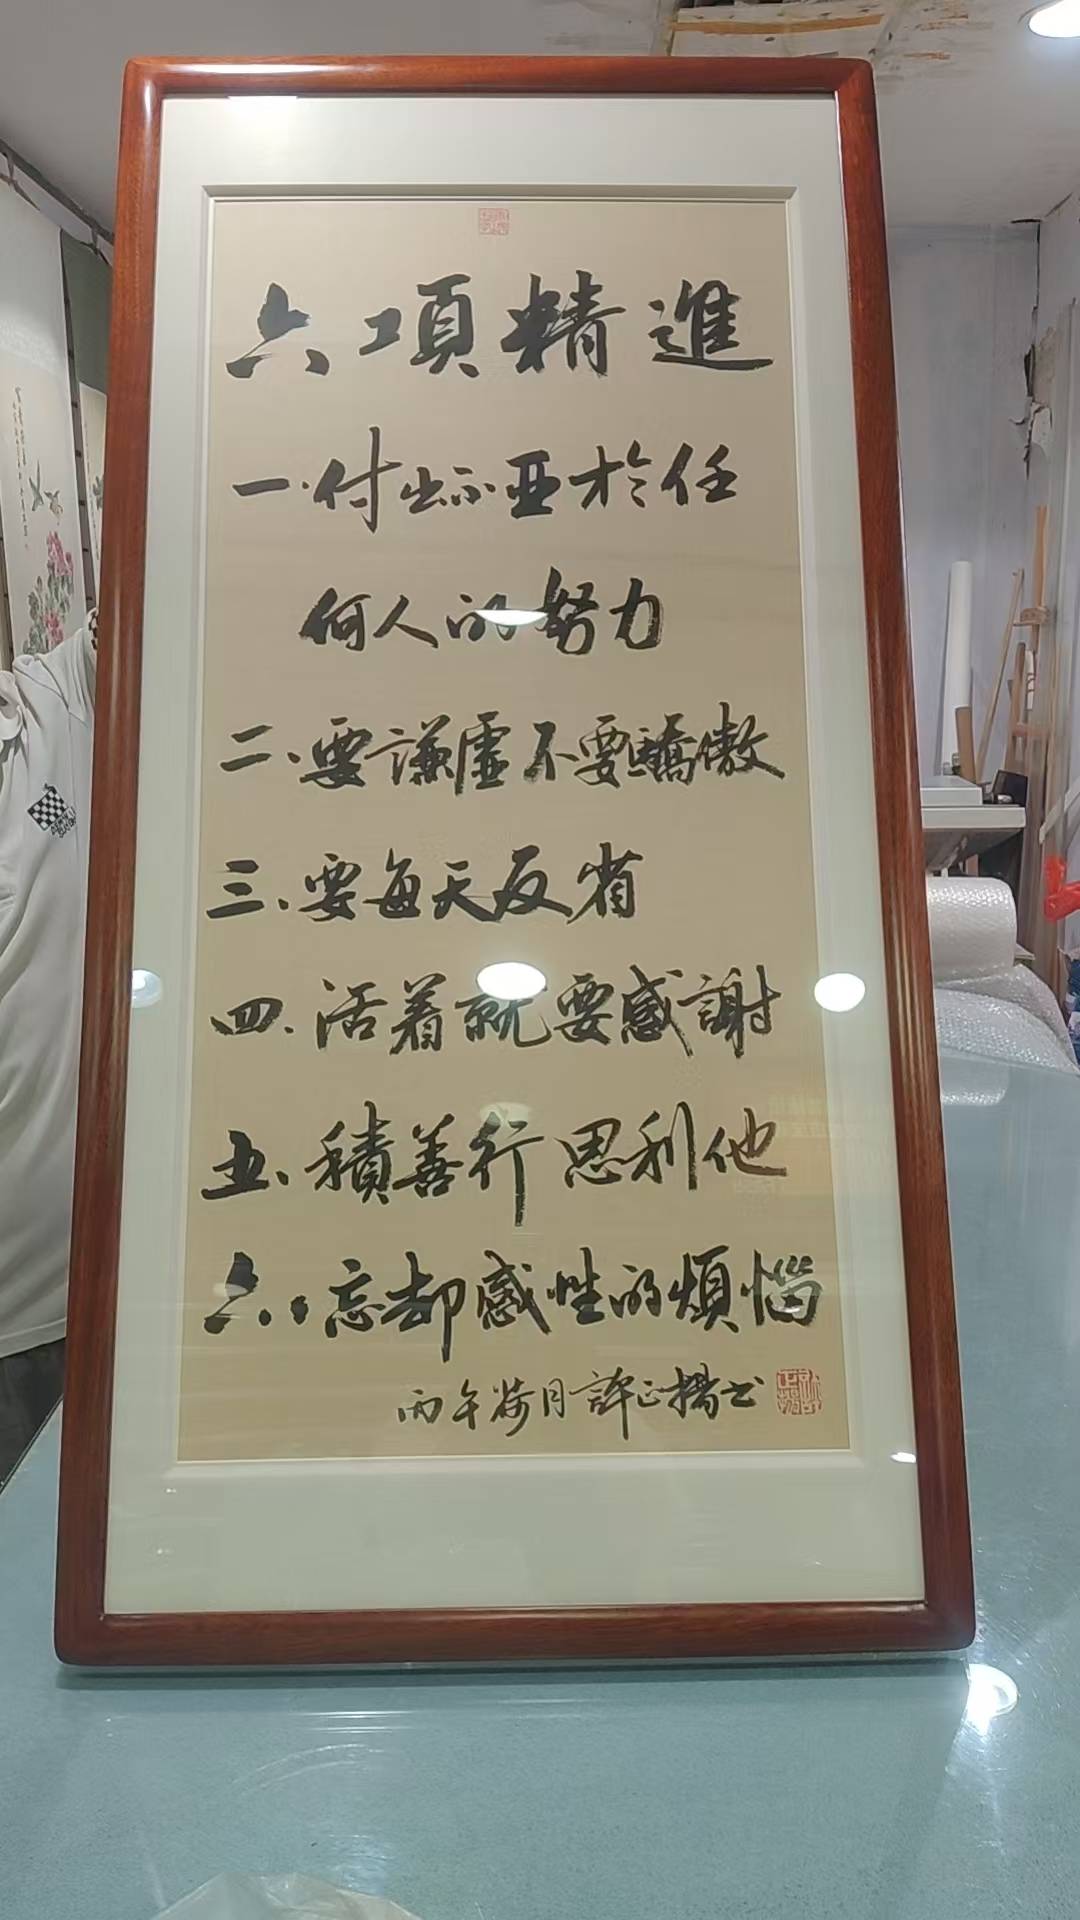 六項精進
一.付出不亞於任
何人的努力
二、要謙虛不要驕傲
三、要每天反省
四.活着就要感謝
五、積善行思利他
六、忘却感性的煩惱
丙午荷月許正楊书